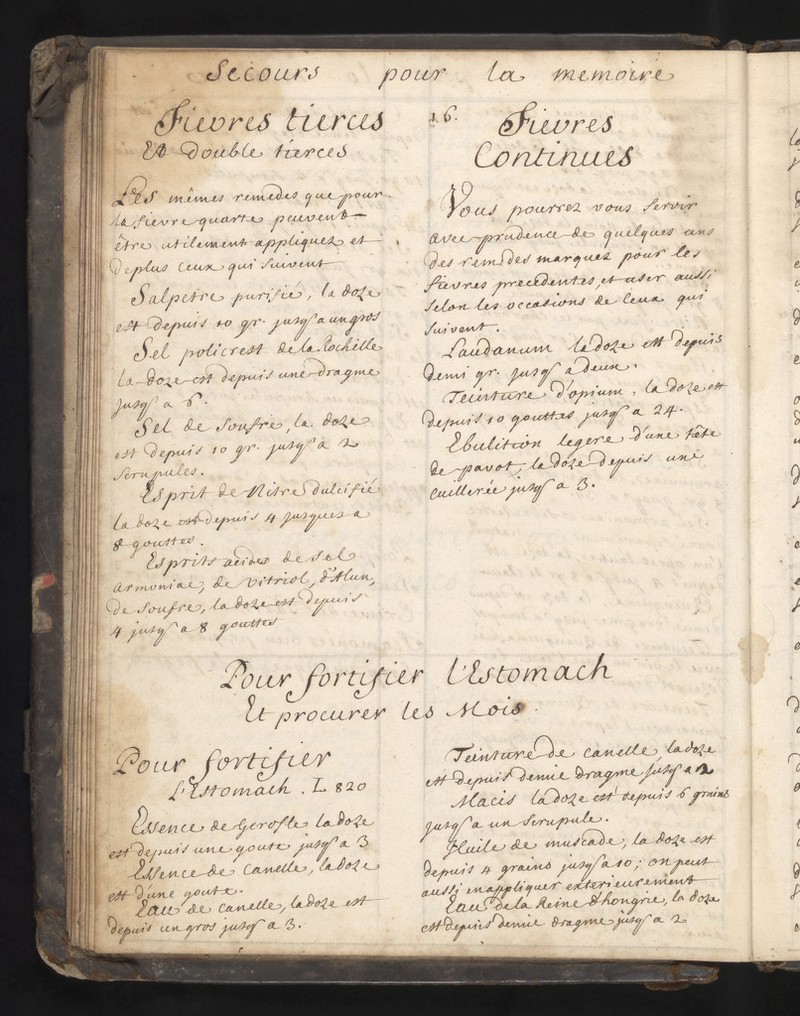 Secours pour la memoire
16.
Fievres tierces
Et double tierces
Les mêmes remedes que pour
la fievre quarte peuvent
être utilement appliquez et
deplus ceux qui suivent
Salpetre purifié, la doze
est depuis 10 gr. jusq' a un gros
Sel policrest de la Rochelle
la doze est depuis une dragme
jusq' a 6.
Sel de Soufre, la doze
est depuis 10 gr. jusq' a 2
scrupules.
Esprit de Nitre Dulcifié
la doze est depuis 4 jusques a
8 gouttes.
Esprits acides de Sel
armoniac, de vitriol, d'Alun,
de Soufre, la doze est depuis
4 jusq' a 8 gouttes
Fievres
Continues
Vous pourrez vous servir
avec prudence de quelques uns
des remedes marquez pour les
fievres precedentes, et user aussi
selon les occasions de ceux qui
suivent.
Laudanum la doze est depuis
demi gr. jusq' a deux.
Teinture d'opium, la doze est
depuis 10 gouttes jusq' a 24.
Ebulition legere d'une tête
de pavot, la doze depuis une
cuillerée jusq' a 3.
Pour fortifier l'Estomach
Et procurer les Mois.
Pour fortifier
l'Estomach. L 820
Essence de Gerofle la doze
est depuis une goute jusq' a 3
Essence de Canelle, la doze
est d'une goute.
Eau de Canelle, la doze est
depuis un gros jusq' a 3.
Teinture de Canelle la doze
est depuis demie dragme jusq' a 2
Macis la doze est depuis 6 grains
jusq' a un scrupule.
Huile de muscade, la doze est
depuis 4 grains jusq' a 10; on peut
aussi en appliquer exterieurement
Eau de la Reine d'hongrie, la doze
est depuis demie dragme jusq' a 2